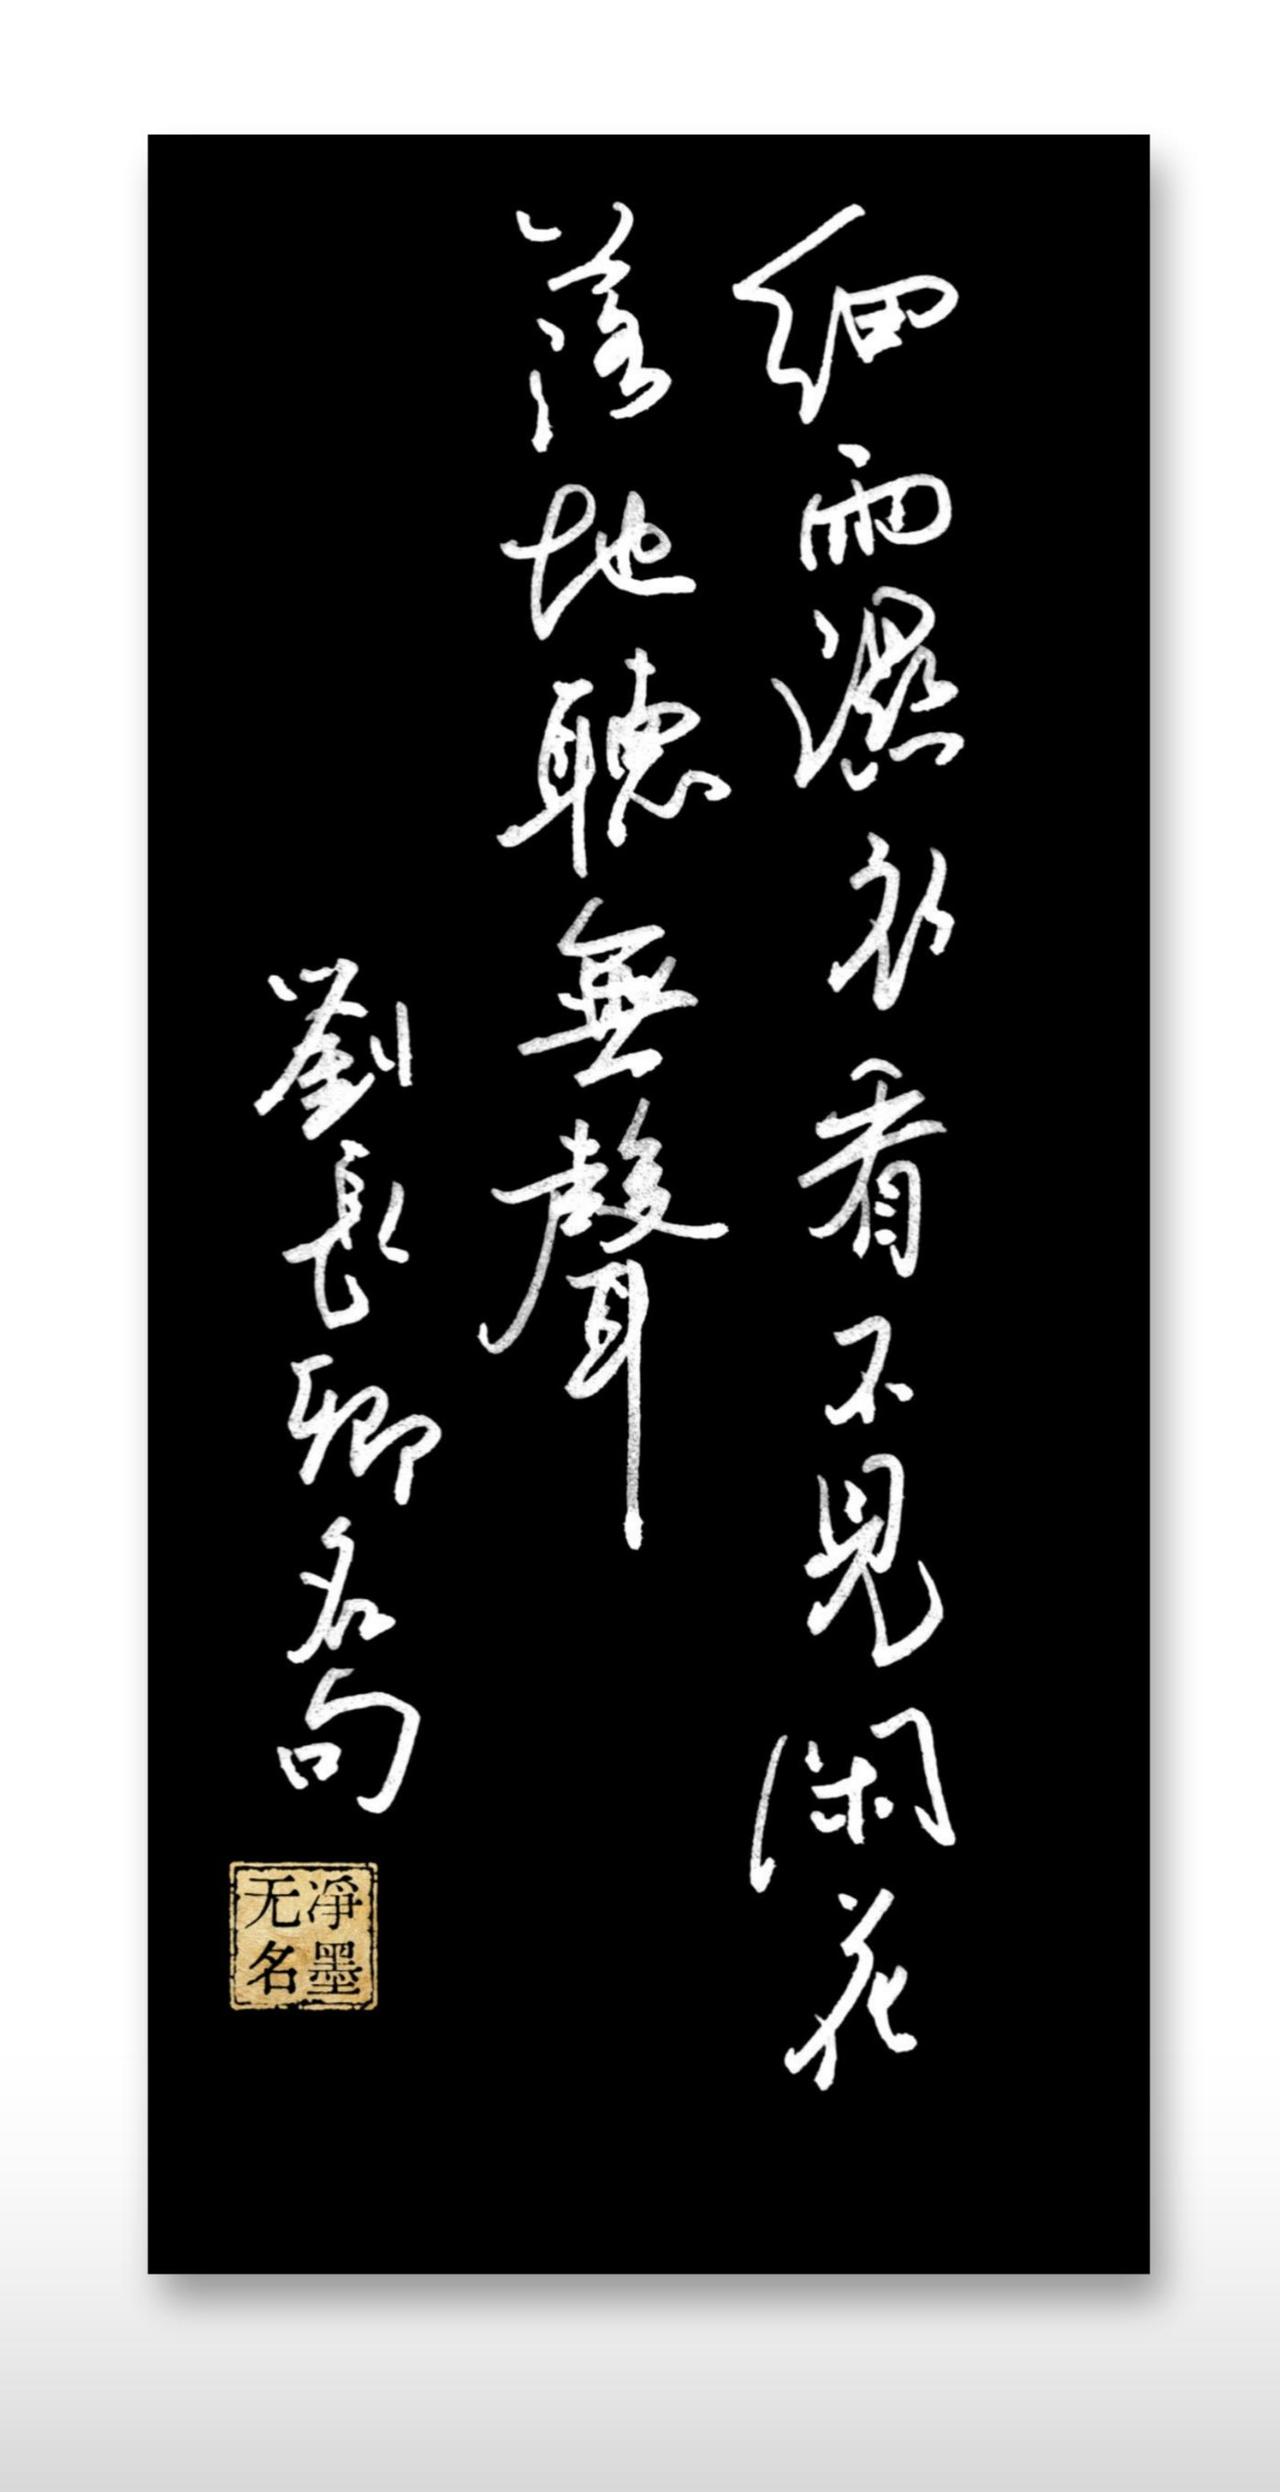 細雨濕衣看不見閑花
落地聽無聲
劉長卿名句
淨墨
无名